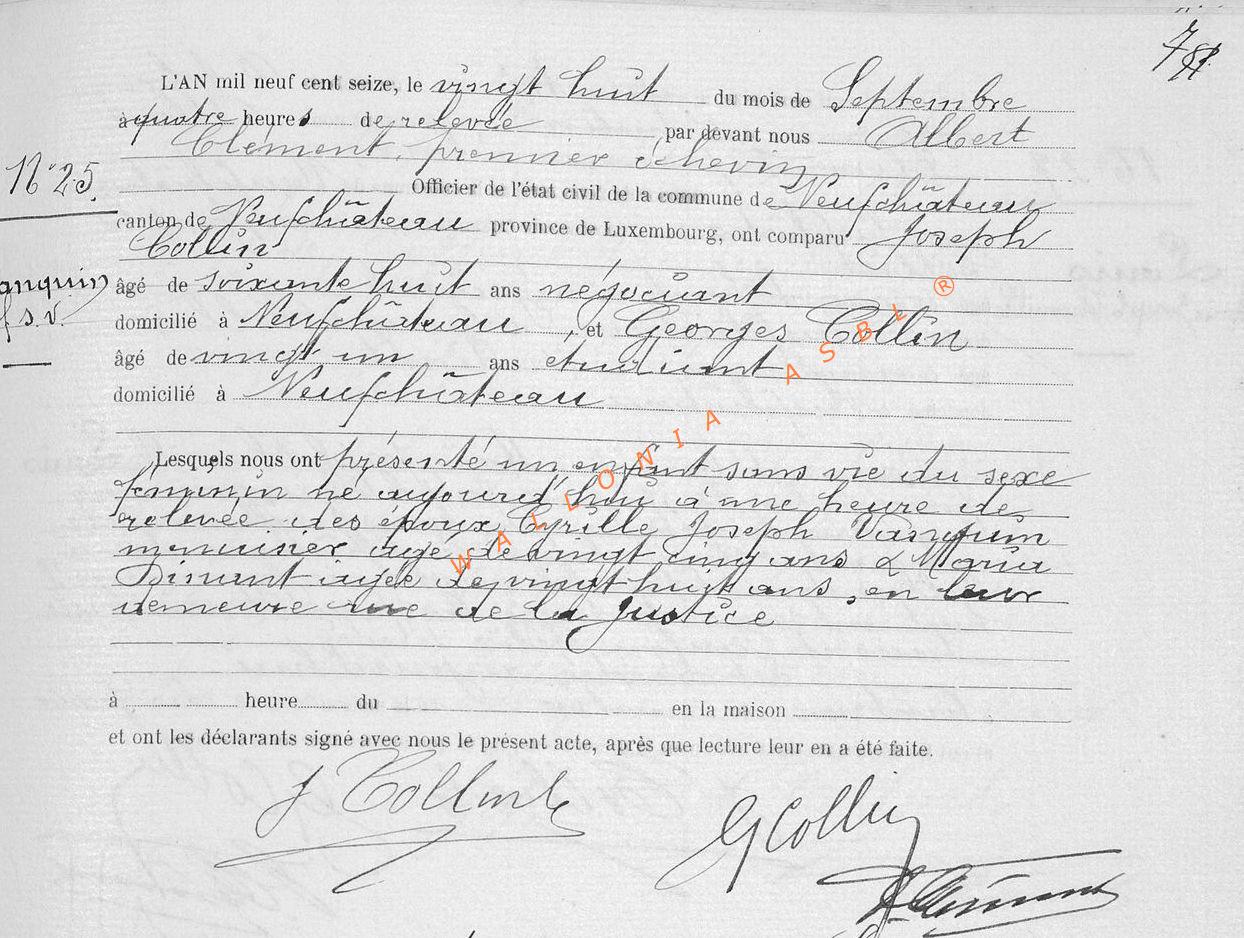 78
L'AN mil neuf cent seize, le vingt huit du mois de Septembre
à quatre heures de relevée par devant nous Albert
Clément, premier échevin
N° 25.
Officier de l'état civil de la commune de Neufchâteau
canton de Neufchâteau province de Luxembourg, ont comparu Joseph
Collin
anquin
f. s. v.
âgé de soixante huit ans négociant
domicilié à Neufchâteau, et Georges Collin
âgé de vingt un ans etudiant
domicilié à Neufchâteau
Lesquels nous ont présenté un enfant sans vie du sexe
féminin né aujourd'hui à une heure de
relevée des époux Cyrille Joseph Vanquin
menuisier agé de vingt cinq ans & Maria
Dinant agée de vingt huit ans, en leur
demeure rue de la Justice
à heure du en la maison
et ont les déclarants signé avec nous le présent acte, après que lecture leur en a été faite.
J Collin
G Collin
A Clément
WALLONIA ASBL ®